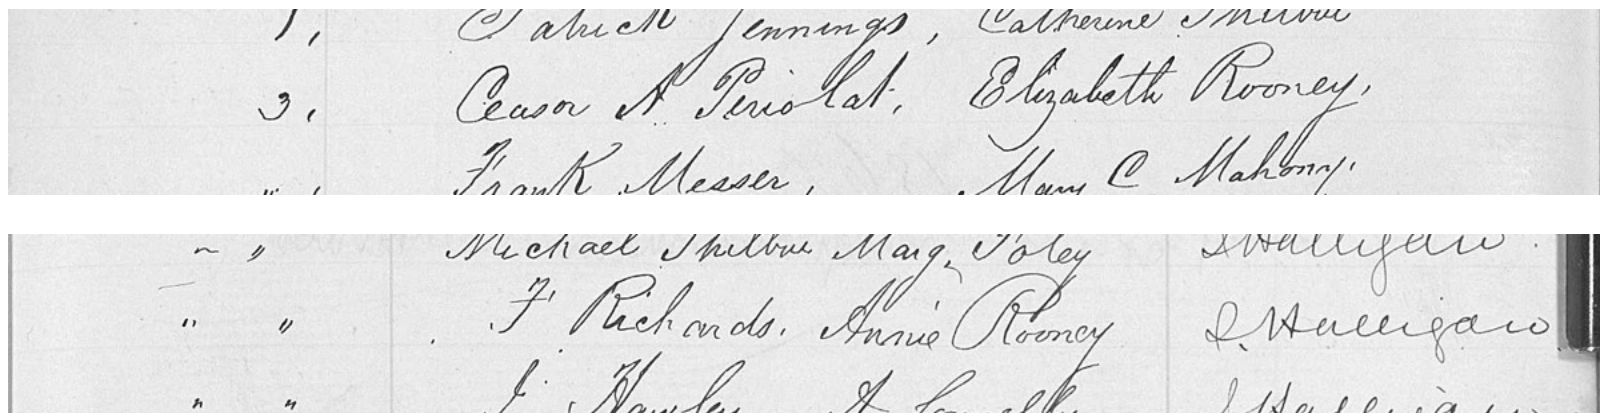 1, Patrick Jennings, Catherine Philbin
3, Ceasor A Periolat, Elizabeth Rooney,
" , Frank Messer, Mary C Mahony,
~ " Michael Philbin Marg. Foley S Halligan
" " F Richards. Annie Rooney S. Halligan
" " J. Hawley A Connelly S Halligan